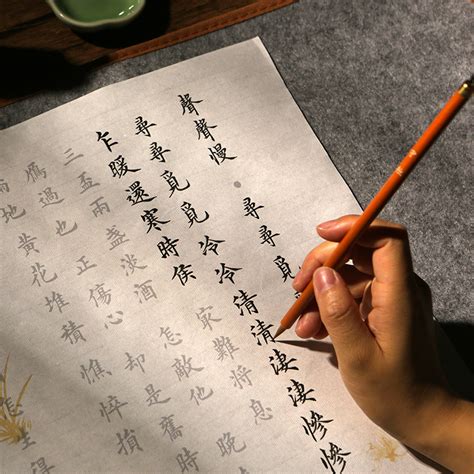 聲聲慢 尋尋覓
尋尋覓覓冷冷清清淒淒慘慘
乍暖還寒時侯 難將息
三盃兩盞淡酒 怎敵他 晚
鴈過也 正傷心 却是舊時
地黃花堆積 憔悴損
怎生得